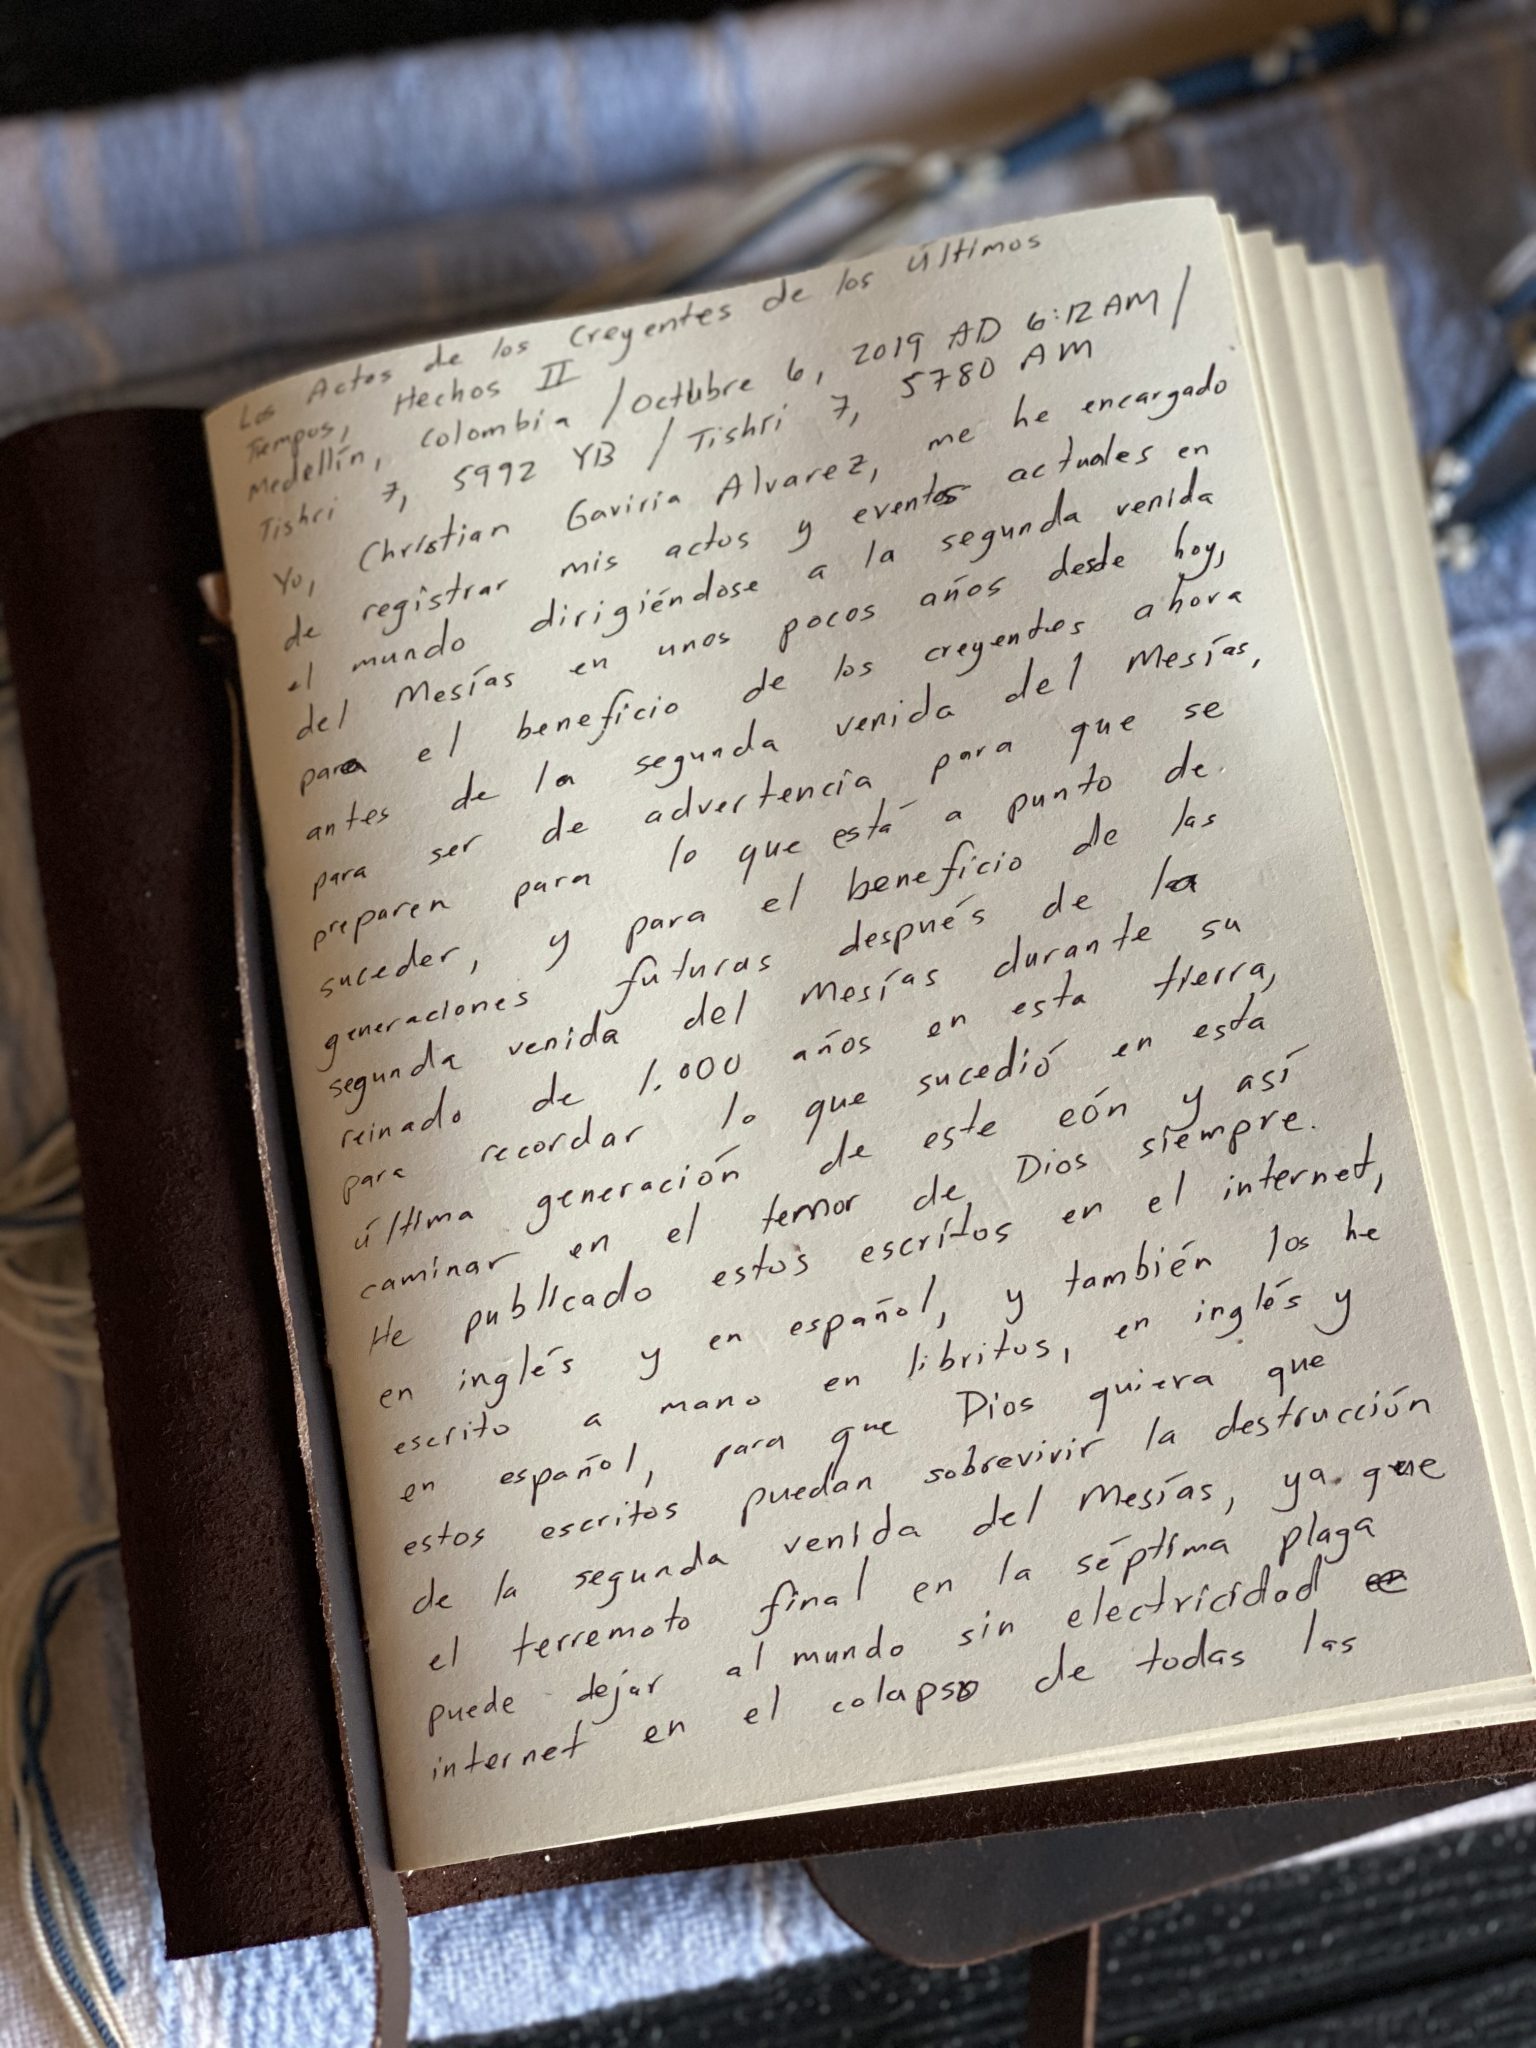 Los Actos de los Creyentes de los últimos
Tiempos, Hechos II
Medellín, Colombia / Octubre 6, 2019 AD 6:12 AM /
Tishri 7, 5992 YB / Tishri 7, 5780 AM
Yo, Christian Gaviria Alvarez, me he encargado
de registrar mis actos y eventos actuales en
el mundo dirigiéndose a la segunda venida
del Mesías en unos pocos años desde hoy,
para el beneficio de los creyentes ahora
antes de la segunda venida del Mesías,
para ser de advertencia para que se
preparen para lo que está a punto de
suceder, y para el beneficio de las
generaciones futuras después de la
segunda venida del Mesías durante su
reinado de 1.000 años en esta tierra,
para recordar lo que sucedió en esta
última generación de este eón y así
caminar en el temor de Dios siempre.
He publicado estos escritos en el internet,
en inglés y en español, y también los he
escrito a mano en libritos, en inglés y
en español, para que Dios quiera que
estos escritos puedan sobrevivir la destrucción
de la segunda venida del Mesías, ya que
el terremoto final en la séptima plaga
puede dejar al mundo sin electricidad
internet en el colapso de todas las